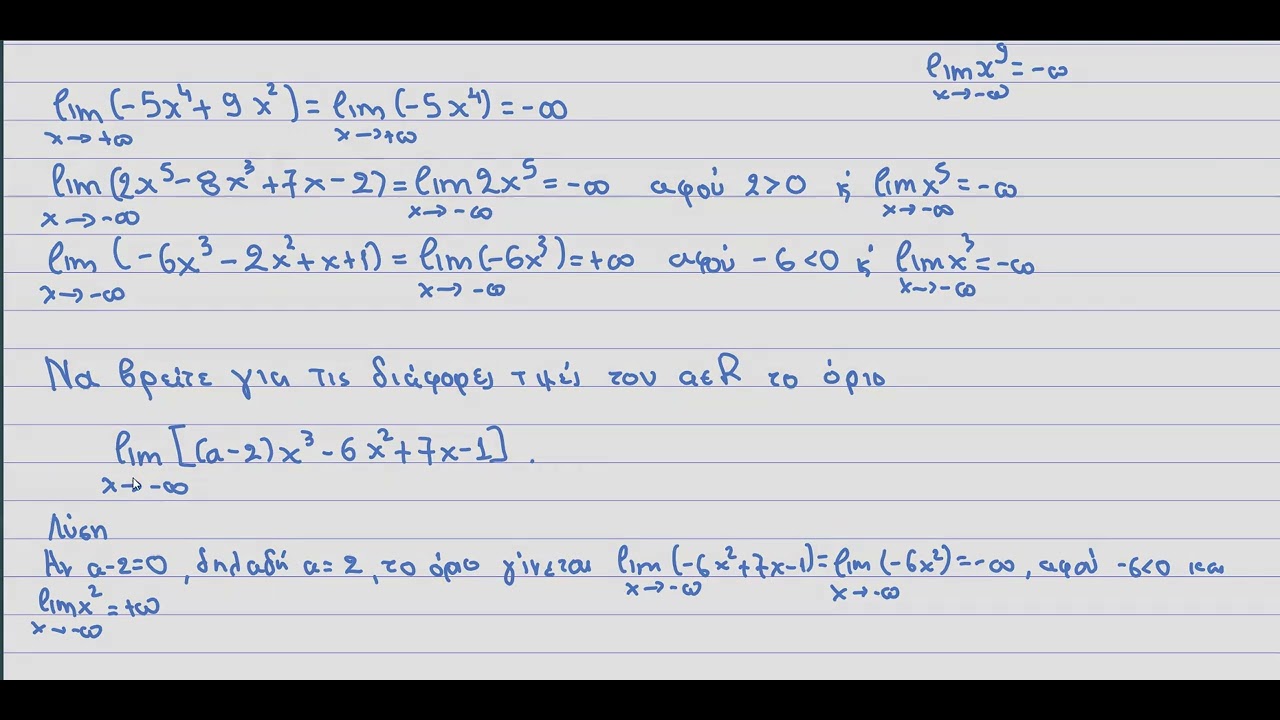 lim x⁹ = -∞
x→-∞
lim (-5x⁴ + 9x²) = lim (-5x⁴) = -∞
x→+∞ x→+∞
lim (2x⁵ - 8x³ + 7x - 2) = lim 2x⁵ = -∞ αφού 2>0 κ' lim x⁵ = -∞
x→-∞ x→-∞ x→-∞
lim (-6x³ - 2x² + x + 1) = lim (-6x³) = +∞ αφού -6<0 κ' lim x³ = -∞
x→-∞ x→-∞ x→-∞
Να βρείτε για τις διάφορες τιμές του α∈ℝ το όριο
lim [(α-2)x³ - 6x² + 7x - 1] .
x→-∞
Λύση
Αν α-2=0 , δηλαδή α=2 , το όριο γίνεται lim (-6x²+7x-1) = lim (-6x²) = -∞ , αφού -6<0 και
x→-∞ x→-∞
lim x² = +∞
x→-∞